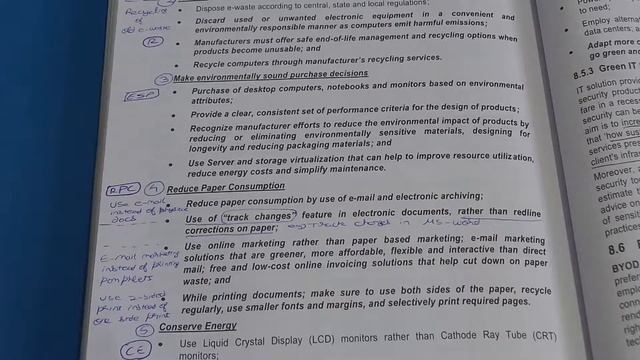 Recycling
of
old e-waste
12
• Dispose e-waste according to central, state and local regulations;
• Discard used or unwanted electronic equipment in a convenient and
environmentally responsible manner as computers emit harmful emissions;
• Manufacturers must offer safe end-of-life management and recycling options when
products become unusable; and
• Recycle computers through manufacturer's recycling services.
3 Make environmentally sound purchase decisions
ESP
• Purchase of desktop computers, notebooks and monitors based on environmental
attributes;
• Provide a clear, consistent set of performance criteria for the design of products;
• Recognize manufacturer efforts to reduce the environmental impact of products by
reducing or eliminating environmentally sensitive materials, designing for
longevity and reducing packaging materials; and
• Use Server and storage virtualization that can help to improve resource utilization,
reduce energy costs and simplify maintenance.
RPC 4 Reduce Paper Consumption
use e-mail
instead of physical
docs
• Reduce paper consumption by use of e-mail and electronic archiving;
• Use of "track changes" feature in electronic documents, rather than redline
corrections on paper; eg Track changes in MS-word
E-mail marketing
instead of printing
pamplets
• Use online marketing rather than paper based marketing; e-mail marketing
solutions that are greener, more affordable, flexible and interactive than direct
mail; free and low-cost online invoicing solutions that help cut down on paper
waste; and
use 2-sided
print instead of
one side print
• While printing documents; make sure to use both sides of the paper, recycle
regularly, use smaller fonts and margins, and selectively print required pages.
5 Conserve Energy
CE
• Use Liquid Crystal Display (LCD) monitors rather than Cathode Ray Tube (CRT)
monitors;
to need;
• Employ alterna
data centers; a
• Adapt more
go green and
8.5.3 Green IT
IT solution provid
security product
fare in a recess
security can be
aim is to increa
that 'how sus
services pres
client's infras
Moreover, a
security to
estimate t
and
of sensi
practices
8.6
BYOD
prefer
emplo
conne
rende
right
tech